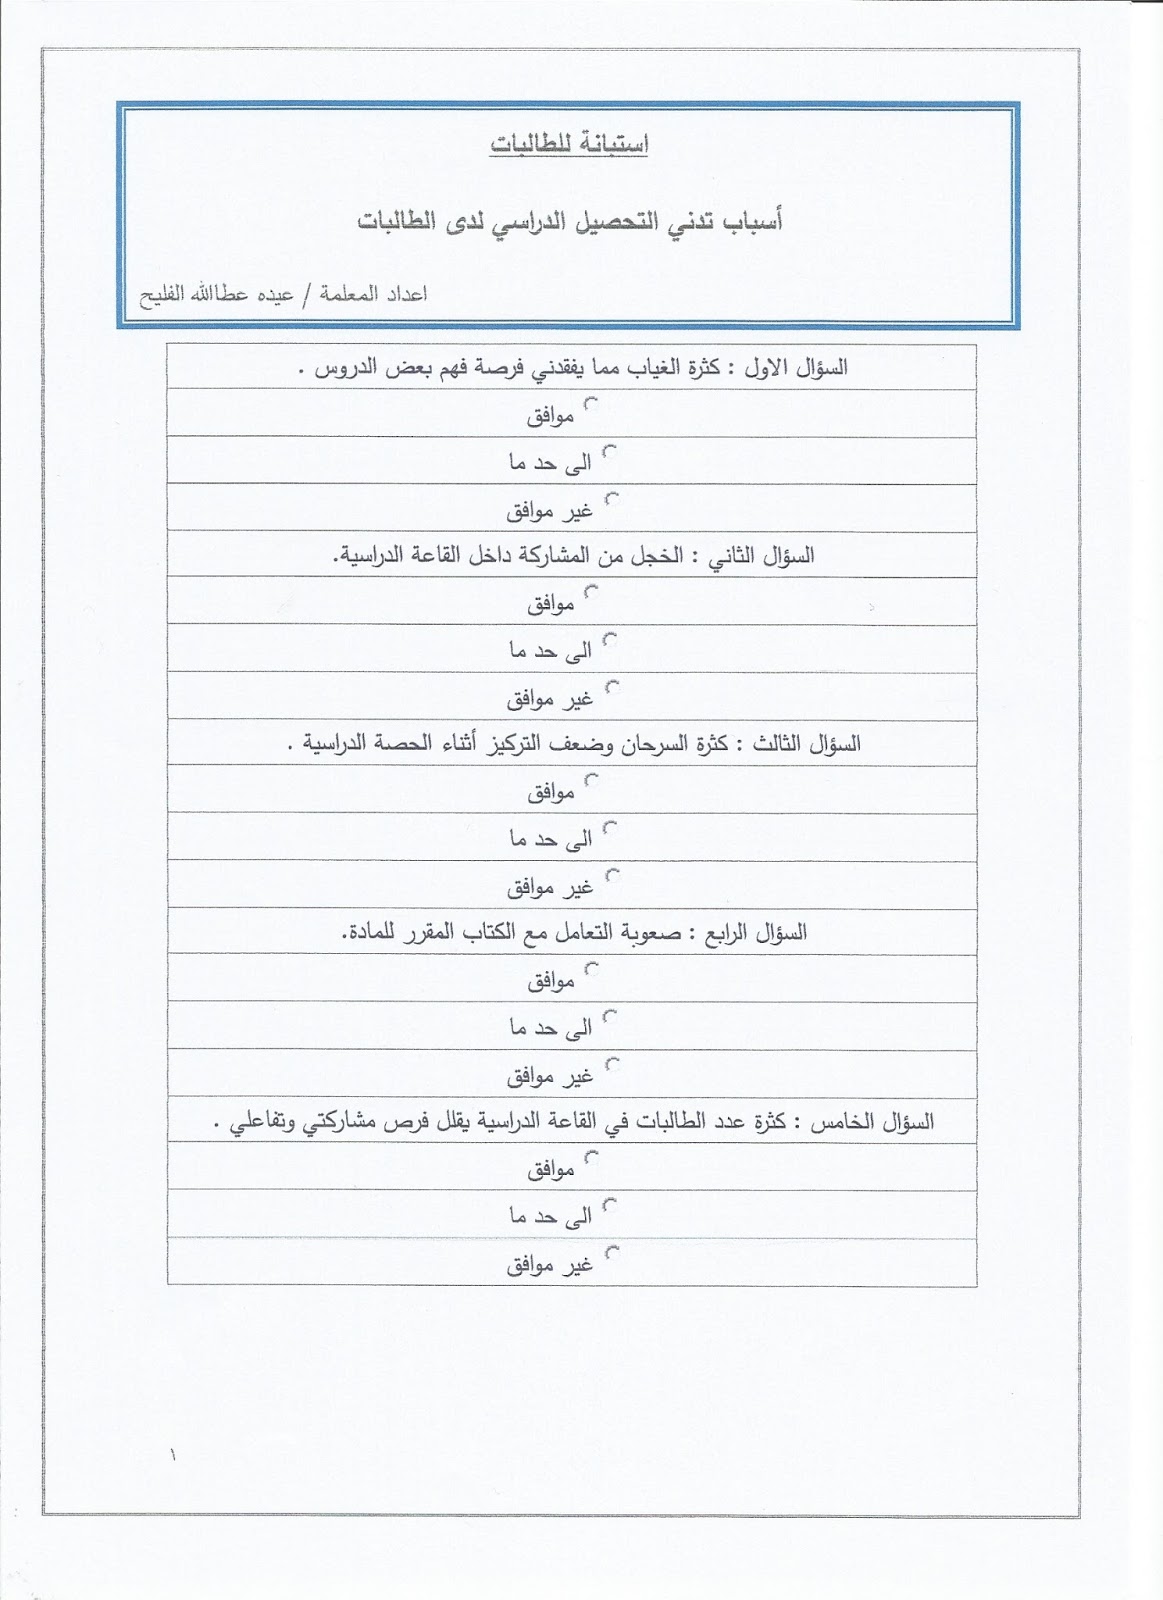 استبانة للطالبات
أسباب تدني التحصيل الدراسي لدى الطالبات
اعداد المعلمة / عيده عطاالله الفليح
السؤال الاول : كثرة الغياب مما يفقدني فرصة فهم بعض الدروس .
موافق
الى حد ما
غير موافق
السؤال الثاني : الخجل من المشاركة داخل القاعة الدراسية.
موافق
الى حد ما
غير موافق
السؤال الثالث : كثرة السرحان وضعف التركيز أثناء الحصة الدراسية .
موافق
الى حد ما
غير موافق
السؤال الرابع : صعوبة التعامل مع الكتاب المقرر للمادة.
موافق
الى حد ما
غير موافق
السؤال الخامس : كثرة عدد الطالبات في القاعة الدراسية يقلل فرص مشاركتي وتفاعلي .
موافق
الى حد ما
غير موافق
١